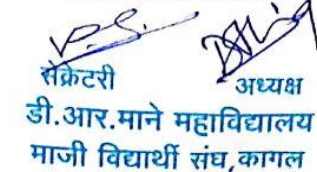 सेक्रेटरी अध्यक्ष
डी.आर.माने महाविद्यालय
माजी विद्यार्थी संघ,कागल